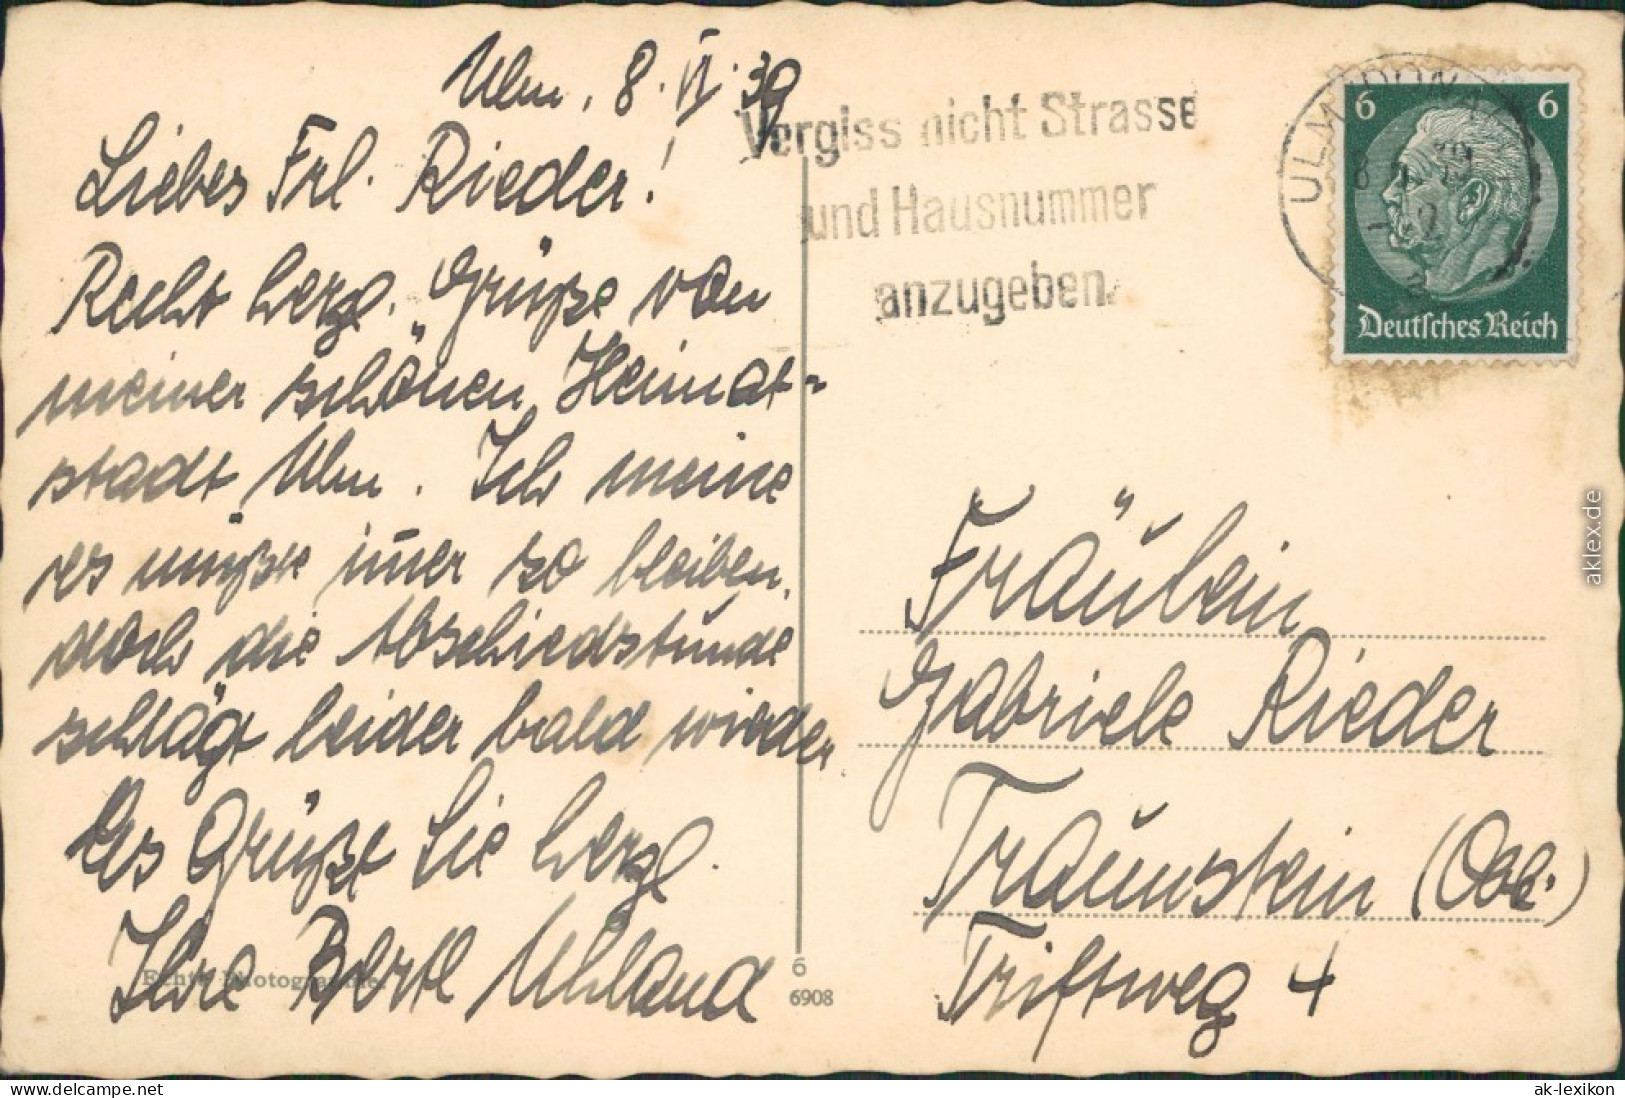 Ulm, 8. VI. 39
Liebes Frl. Rieder!
Recht herzl. Grüße von
meiner schönen Heimat-
stadt Ulm. Ich meine
es müßte im̅er so bleiben,
doch die Abschiedstunde
schlägt leider bald wieder
Es Grüßt Sie herzl.
Ihre Bertl Uhland
Echte Photographie.
6
6908
Vergiss nicht Strasse
und Hausnummer
anzugeben.
ULM (DONAU)
6 6
Deutsches Reich
Fräulein
Gabriele Rieder
Traunstein (Obb.)
Triftweg 4
aklex.de
www.delcampe.net
ak-lexikon